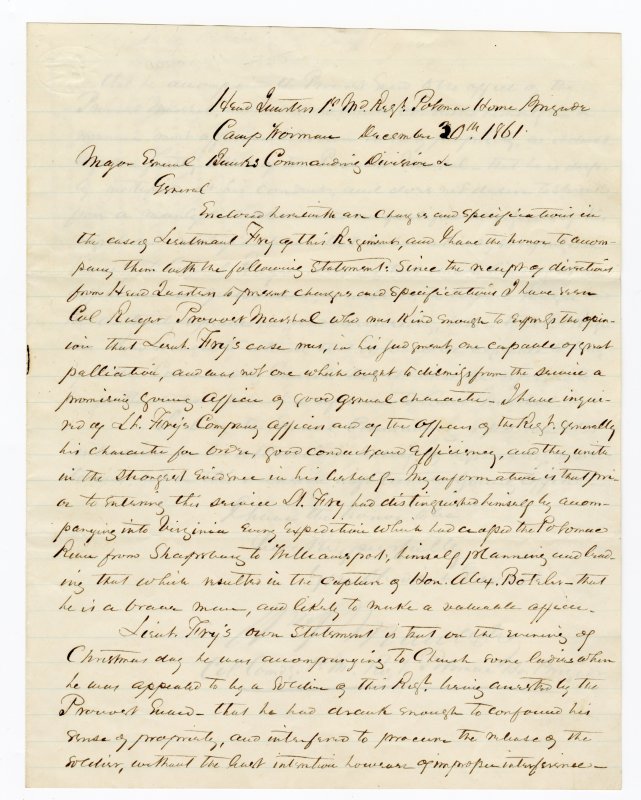 Head Quarters 1st Md. Regt. Potomac Home Brigade
Camp Worman December 30th. 1861.
Major General Banks Commanding Division &c
General
Enclosed herewith are Charges and Specifications in
the case of Lieutenant Fry of this Regiment, and I have the honor to accom-
pany them with the following Statement: Since the receipt of directions
from Head Quarters to present charges and specifications I have seen
Col Ruger Provost Marshal who was kind enough to express the opin-
ion that Lieut. Fry's case was, in his judgment, one capable of great
palliation, and was not one which ought to dismiss from the service a
promising young officer of good general character - I have inqui-
red of Lt. Fry's Company officers and of the officers of the Regt. generally
his character for order, good conduct and efficiency, and they unite
in the strongest evidence in his behalf - My information is that pri-
or to entering this service Lt. Fry had distinguished himself by accom-
panying into Virginia every expedition which had crossed the Potomac
River from Sharpsburg to Williamsport, himself planning and lead-
ing that which resulted in the capture of Hon. Alex. Boteler - that
he is a brave man, and likely to make a valuable officer.
Lieut. Fry's own statement is that on the evening of
Christmas day he was accompanying to Church some ladies when
he was appealed to by a Soldier of this Regt. being arrested by the
Provost Guard - that he had drank enough to confound his
sense of propriety, and interfered to procure the release of the
Soldier, without the least intention however of improper interference -